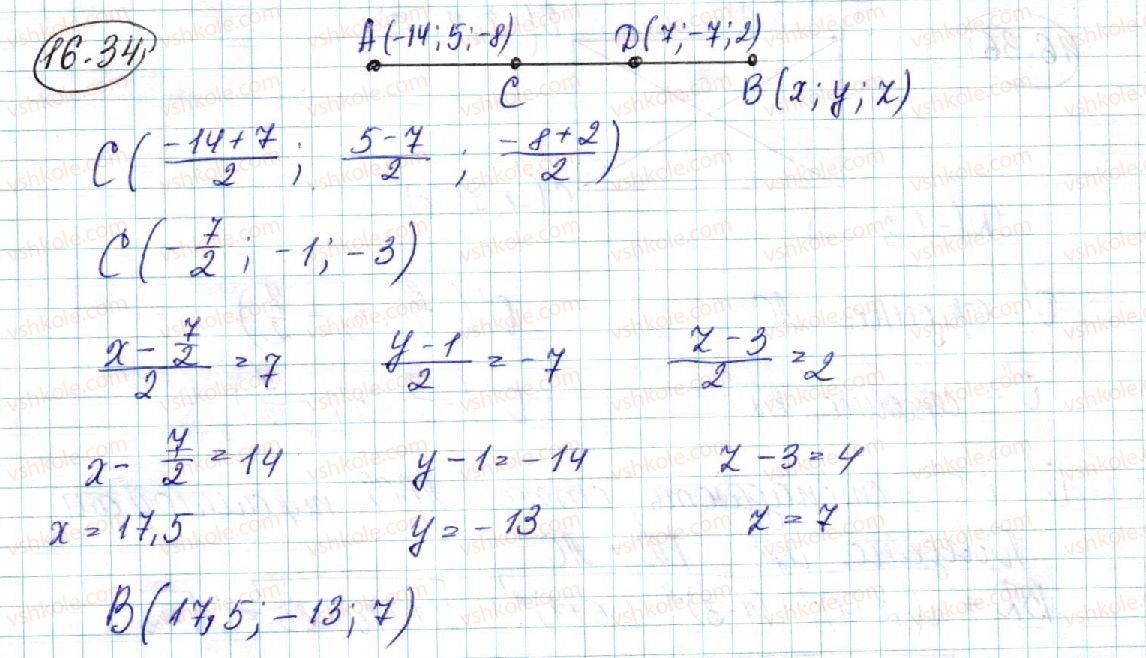 16.34,
A(-14; 5; -8) D(7; -7; 2)
C B(x; y; z)
C((-14+7)/2; (5-7)/2; (-8+2)/2)
C(-7/2; -1; -3)
(x - 7/2)/2 = 7 (y-1)/2 = -7 (z-3)/2 = 2
x - 7/2 = 14 y - 1 = -14 z - 3 = 4
x = 17,5 y = -13 z = 7
B(17,5; -13; 7)